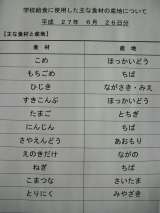 学校給食に使用した主な食材の産地について
平成 27年 6月 26日分
【主な食材と産地】
食材 産地
こめ ほっかいどう
もちごめ ちば
ひじき ながさき・みえ
すきこんぶ ほっかいどう
たまご とちぎ
にんじん ちば
さやえんどう あおもり
えのきだけ ながの
ねぎ ちば
こまつな さいたま
とりにく みやざき